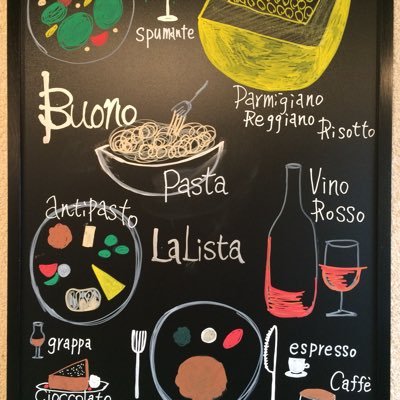 spumante
Parmigiano
Reggiano
Risotto
Buono
Pasta
Vino
Rosso
antipasto
LaLista
grappa
espresso
Caffè
Cioccolato